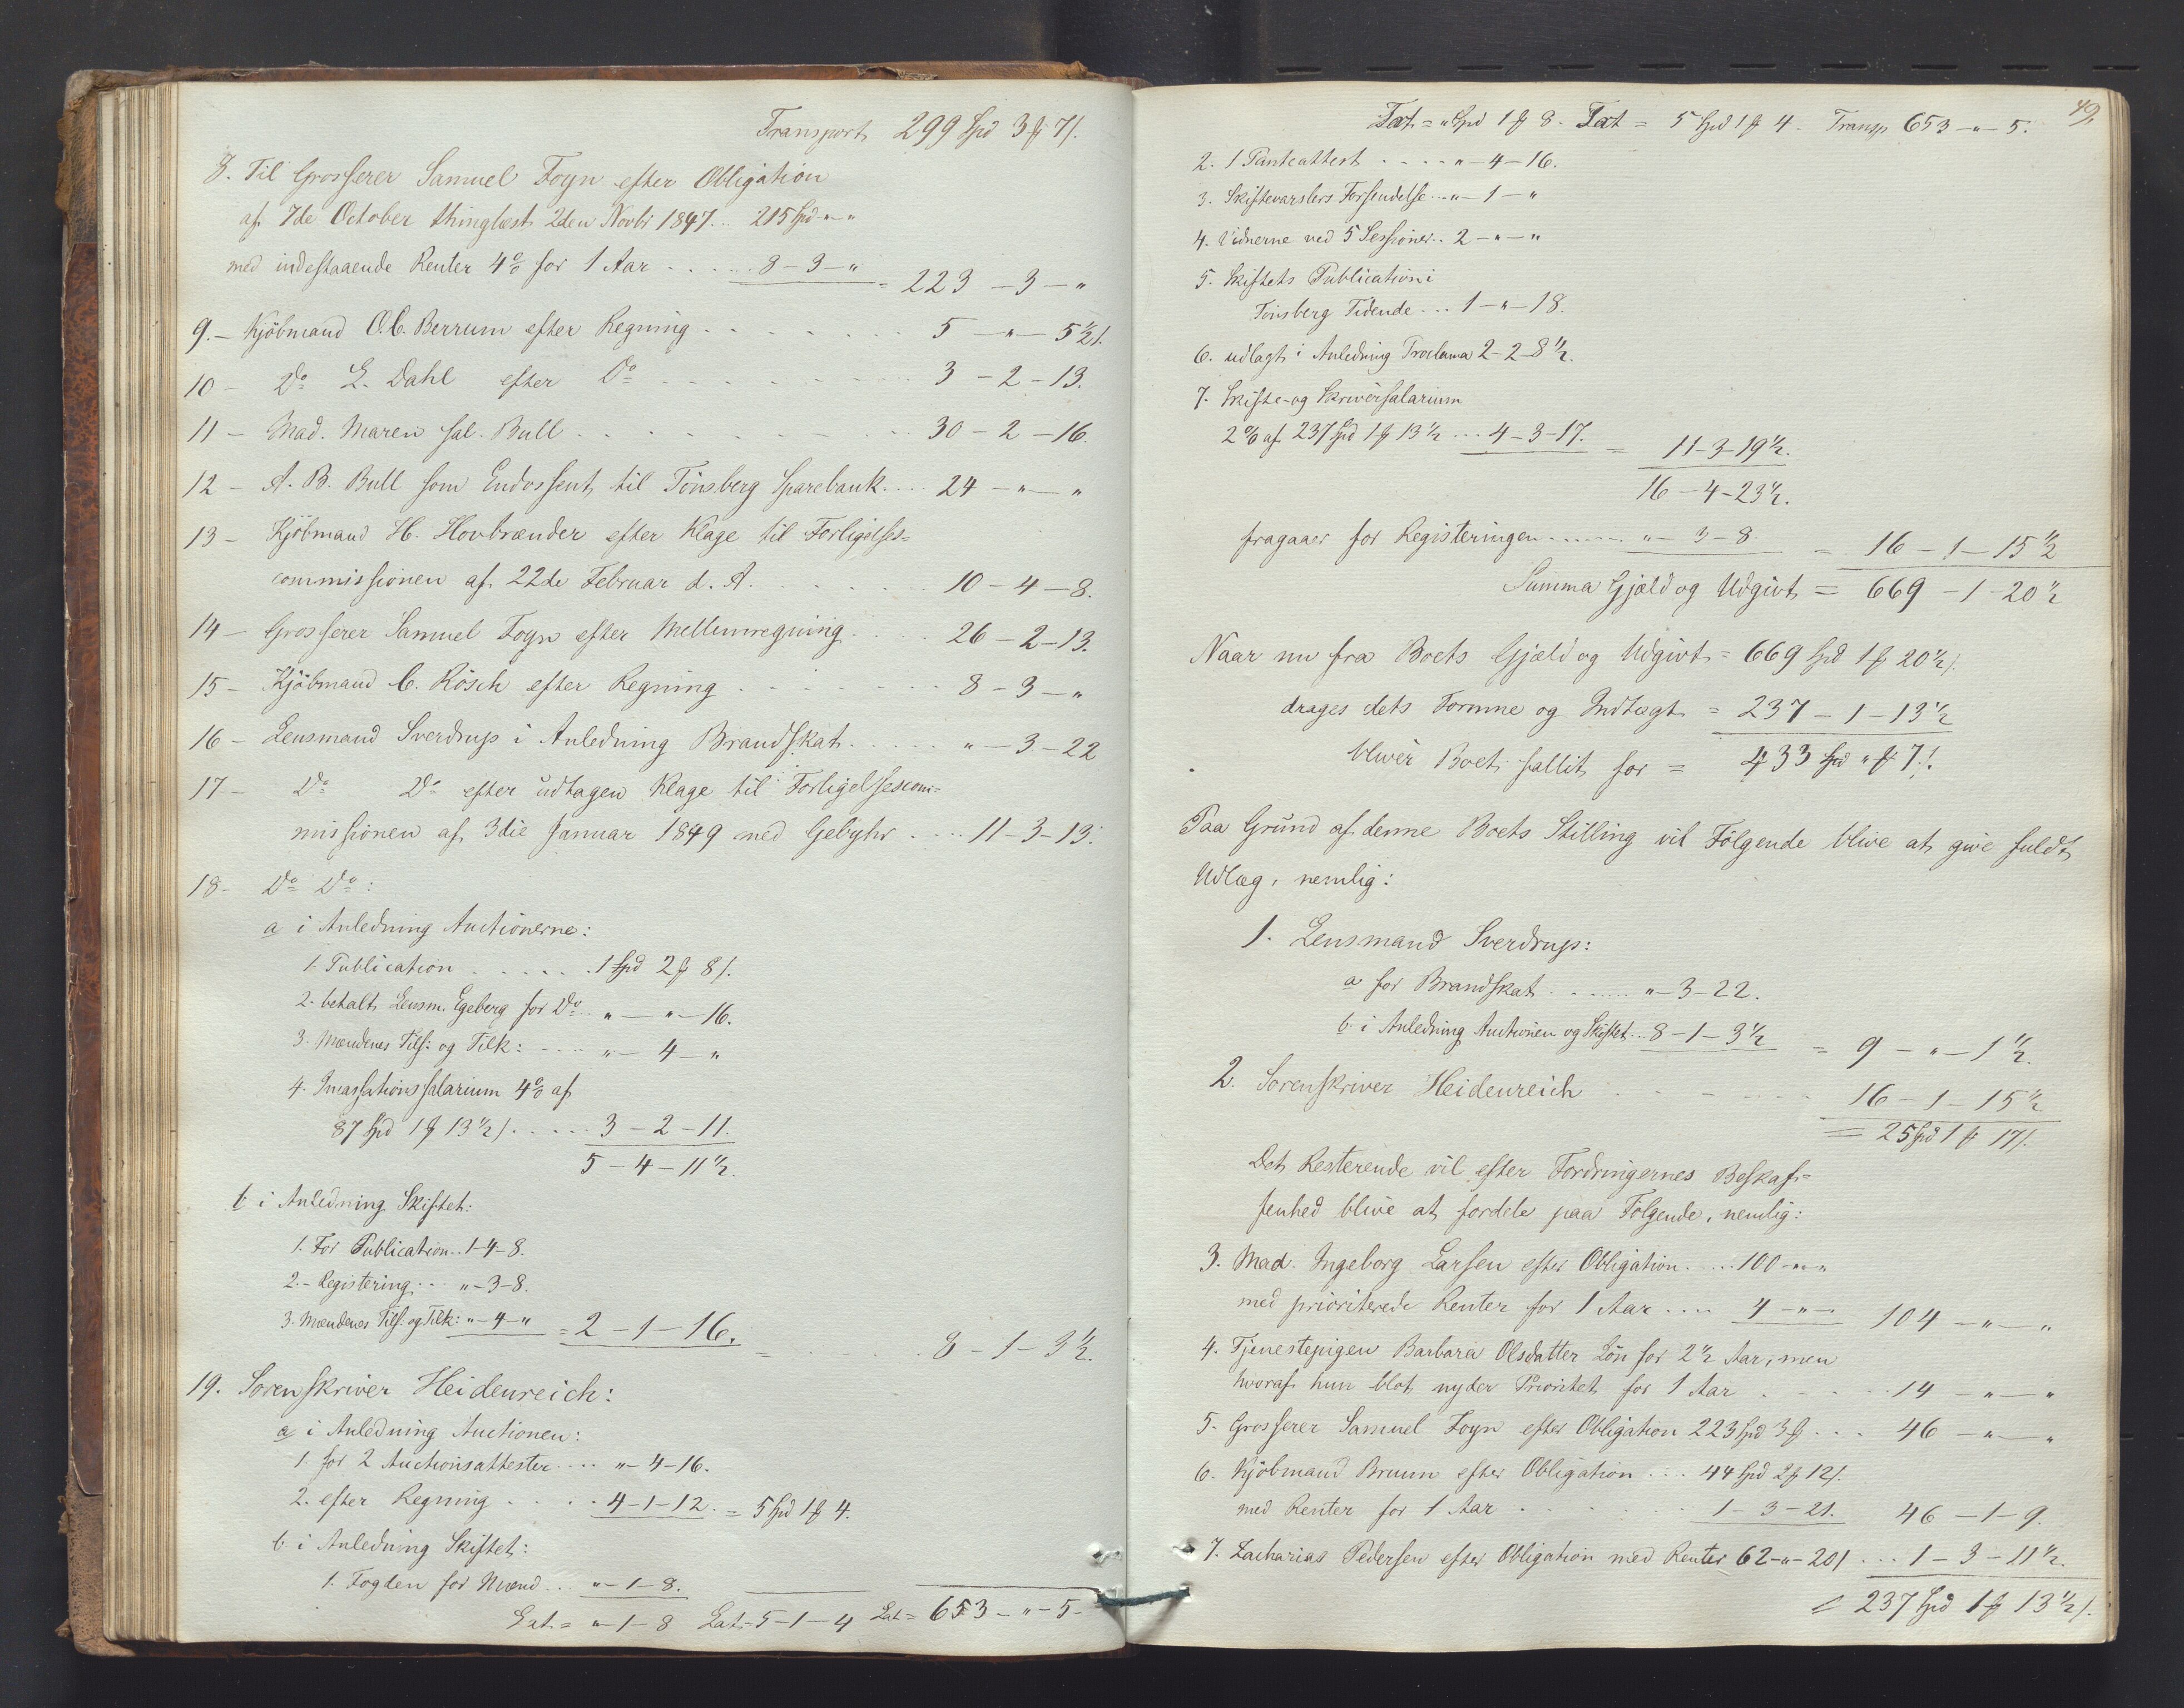 Transport 299 Spd 3 ß 7 /.
8. Til Grosserer Samuel Foyn efter Obligation
af 7de October thinglæst 2den Novbr 1847 .. 215 Spd " - "
med indestaaende Renter 4% for 1 Aar ..... 8 - 3 - " = 223 - 3 - "
9. - Kjöbmand O. C. Berrum efter Regning ........ 5 - " - 5½ /.
10 - Do L. Dahl efter Do ......... 3 - 2 - 13.
11 - Mad. Maren sal. Bull ........ 30 - 2 - 16.
12 - A. B. Bull som Endossent til Tönsberg Sparebank .... 24 - " - "
13 - Kjöbmand H. Hovbrænder efter Klage til Forligelses=
commissionen af 22de Februar d. A. ....... 10 - 4 - 8.
14 - Grosserer Samuel Foyn efter Mellemregning .... 26 - 2 - 13.
15 - Kjöbmand C. Rösch efter Regning ....... 8 - 3 - "
16 - Lensmand Sverdrup i Anledning Brandskat ..... " - 3 - 22
17 - Do Do efter udtagen Klage til Forligelsescom=
missionen af 3die Januar 1849 med Gebyhr .... 11 - 3 - 13.
18 - Do Do:
a i Anledning Auctionerne:
1 Publication ..... 1 Spd 2 ß 8 /.
2. betalt Lensm. Egeberg for Do .. " - " - 16.
3. Mændenes Tils: og Tilk: .... " - 4 - "
4. Incassationssalarium 4% af
87 Spd 1 ß 13½ / ..... 3 - 2 - 11.
5 - 4 - 11½.
b i Anledning Skiftet:
1. For Publication .. 1 - 4 - 8.
2. - Registering ... " - 3 - 8.
3. Mændenes Tils. og Tilk: " - 4 - " = 2 - 1 - 16. = ...... 8 - 1 - 3½.
19. Sorenskriver Heidenreich:
a i Anledning Auctionen:
1. for 2 Auctionsattester .... " - 4 - 16.
2. efter Regning ..... 4 - 1 - 12. = 5 Spd 1 ß 4.
b i Anledning Skiftet:
1. Fogden for Mænd ... " - 1 - 8.
Lat = " - 1 - 8 Lat = 5 - 1 - 4 Lat = 653 - " - 5 -
49.
Lat = " Spd 1 ß 8. Lat = 5 Spd 1 ß 4. Transp 653 - " - 5.
2. 1 Panteattest .... " - 4 - 16.
3. Skiftevarslers Forsendelse ... " - 1 - "
4. Vidnerne ved 5 Sessioner .. 2 - " - "
5. Skiftets Publication i
Tönsberg Tidende ... 1 - " - 18.
6. udlagt i Anledning Proclama 2 - 2 - 8½.
7. Skifte- og Skriversalarium
2% af 237 Spd 1 ß 13½ ... 4 - 3 - 17. = 11 - 3 - 19½.
16 - 4 - 23½.
fragaaer for Registeringen ...... " - 3 - 8. = 16 - 1 - 15½
Summa Gjæld og Udgivt = 669 - 1 - 20½
Naar nu fra Boets Gjæld og Udgivt = 669 Spd 1 ß 20½ /.
drages dets Formue og Indtægt = 237 - 1 - 13½
bliver Boet fallit for = 433 Spd " ß 7 /.
Paa Grund af denne Boets Stilling vil Fölgende blive at give fuldt
Udlæg, nemlig:
1. Lensmand Sverdrup:
a for Brandskat ...... " - 3 - 22.
b. i Anledning Auctionen og Skiftet .. 8 - 1 - 3½ = 9 - " - 1½.
2. Sorenskriver Heidenreich ...... 16 - 1 - 15½
= 25 Spd 1 ß 17 /.
Det Resterende vil efter Fordringernes Beskaf=
fenhed blive at fordele paa Fölgende, nemlig:
3. Mad. Ingeborg Larsen efter Obligation .... 100 - " - "
med prioriterede Renter for 1 Aar .... 4 - " - " 104 - " - "
4. Tjenestepigen Barbara Olsdatter Lön for 2½ Aar, men
hvoraf hun blot nyder Prioritet for 1 Aar ..... 14 - " - "
5. Grosserer Samuel Foyn efter Obligation 223 Spd 3 ß ... 46 - " - "
6. Kjöbmand Bruun efter Obligation ... 44 Spd 2 ß 12 /.
med Renter for 1 Aar ..... 1 - 3 - 21. 46 - 1 - 9.
7. Zacharias Pedersen efter Obligation med Renter 62 - " - 20 / ... 1 - 3 - 11½.
= 237 Spd 1 ß 13½ /.